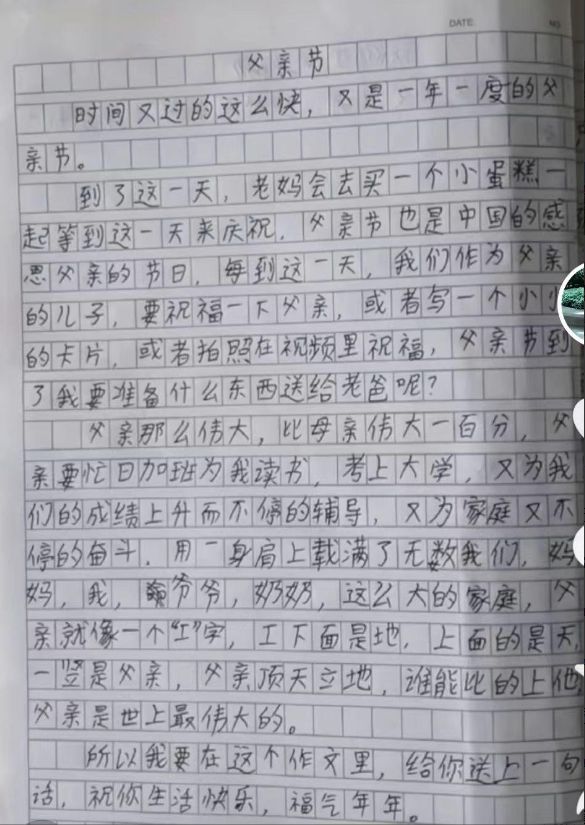 DATE NO
父亲节
时间又过的这么快，又是一年一度的父
亲节。
到了这一天，老妈会去买一个小蛋糕一
起等到这一天来庆祝，父亲节也是中国的感
恩父亲的节日，每到这一天，我们作为父亲
的儿子，要祝福一下父亲，或者写一个小小
的卡片，或者拍照在视频里祝福，父亲节到
了我要准备什么东西送给老爸呢？
父亲那么伟大，比母亲伟大一百分，父
亲要忙日加班为我读书，考上大学，又为我
们的成绩上升而不停的辅导，又为家庭又不
停的奋斗，用一身肩上载满了无数我们，妈
妈，我，爷爷，奶奶，这么大的家庭，父
亲就像一个“工”字，工下面是地，上面的是天，
一竖是父亲，父亲顶天立地，谁能比的上他
父亲是世上最伟大的。
所以我要在这个作文里，给你送上一句
话，祝你生活快乐，福气年年。